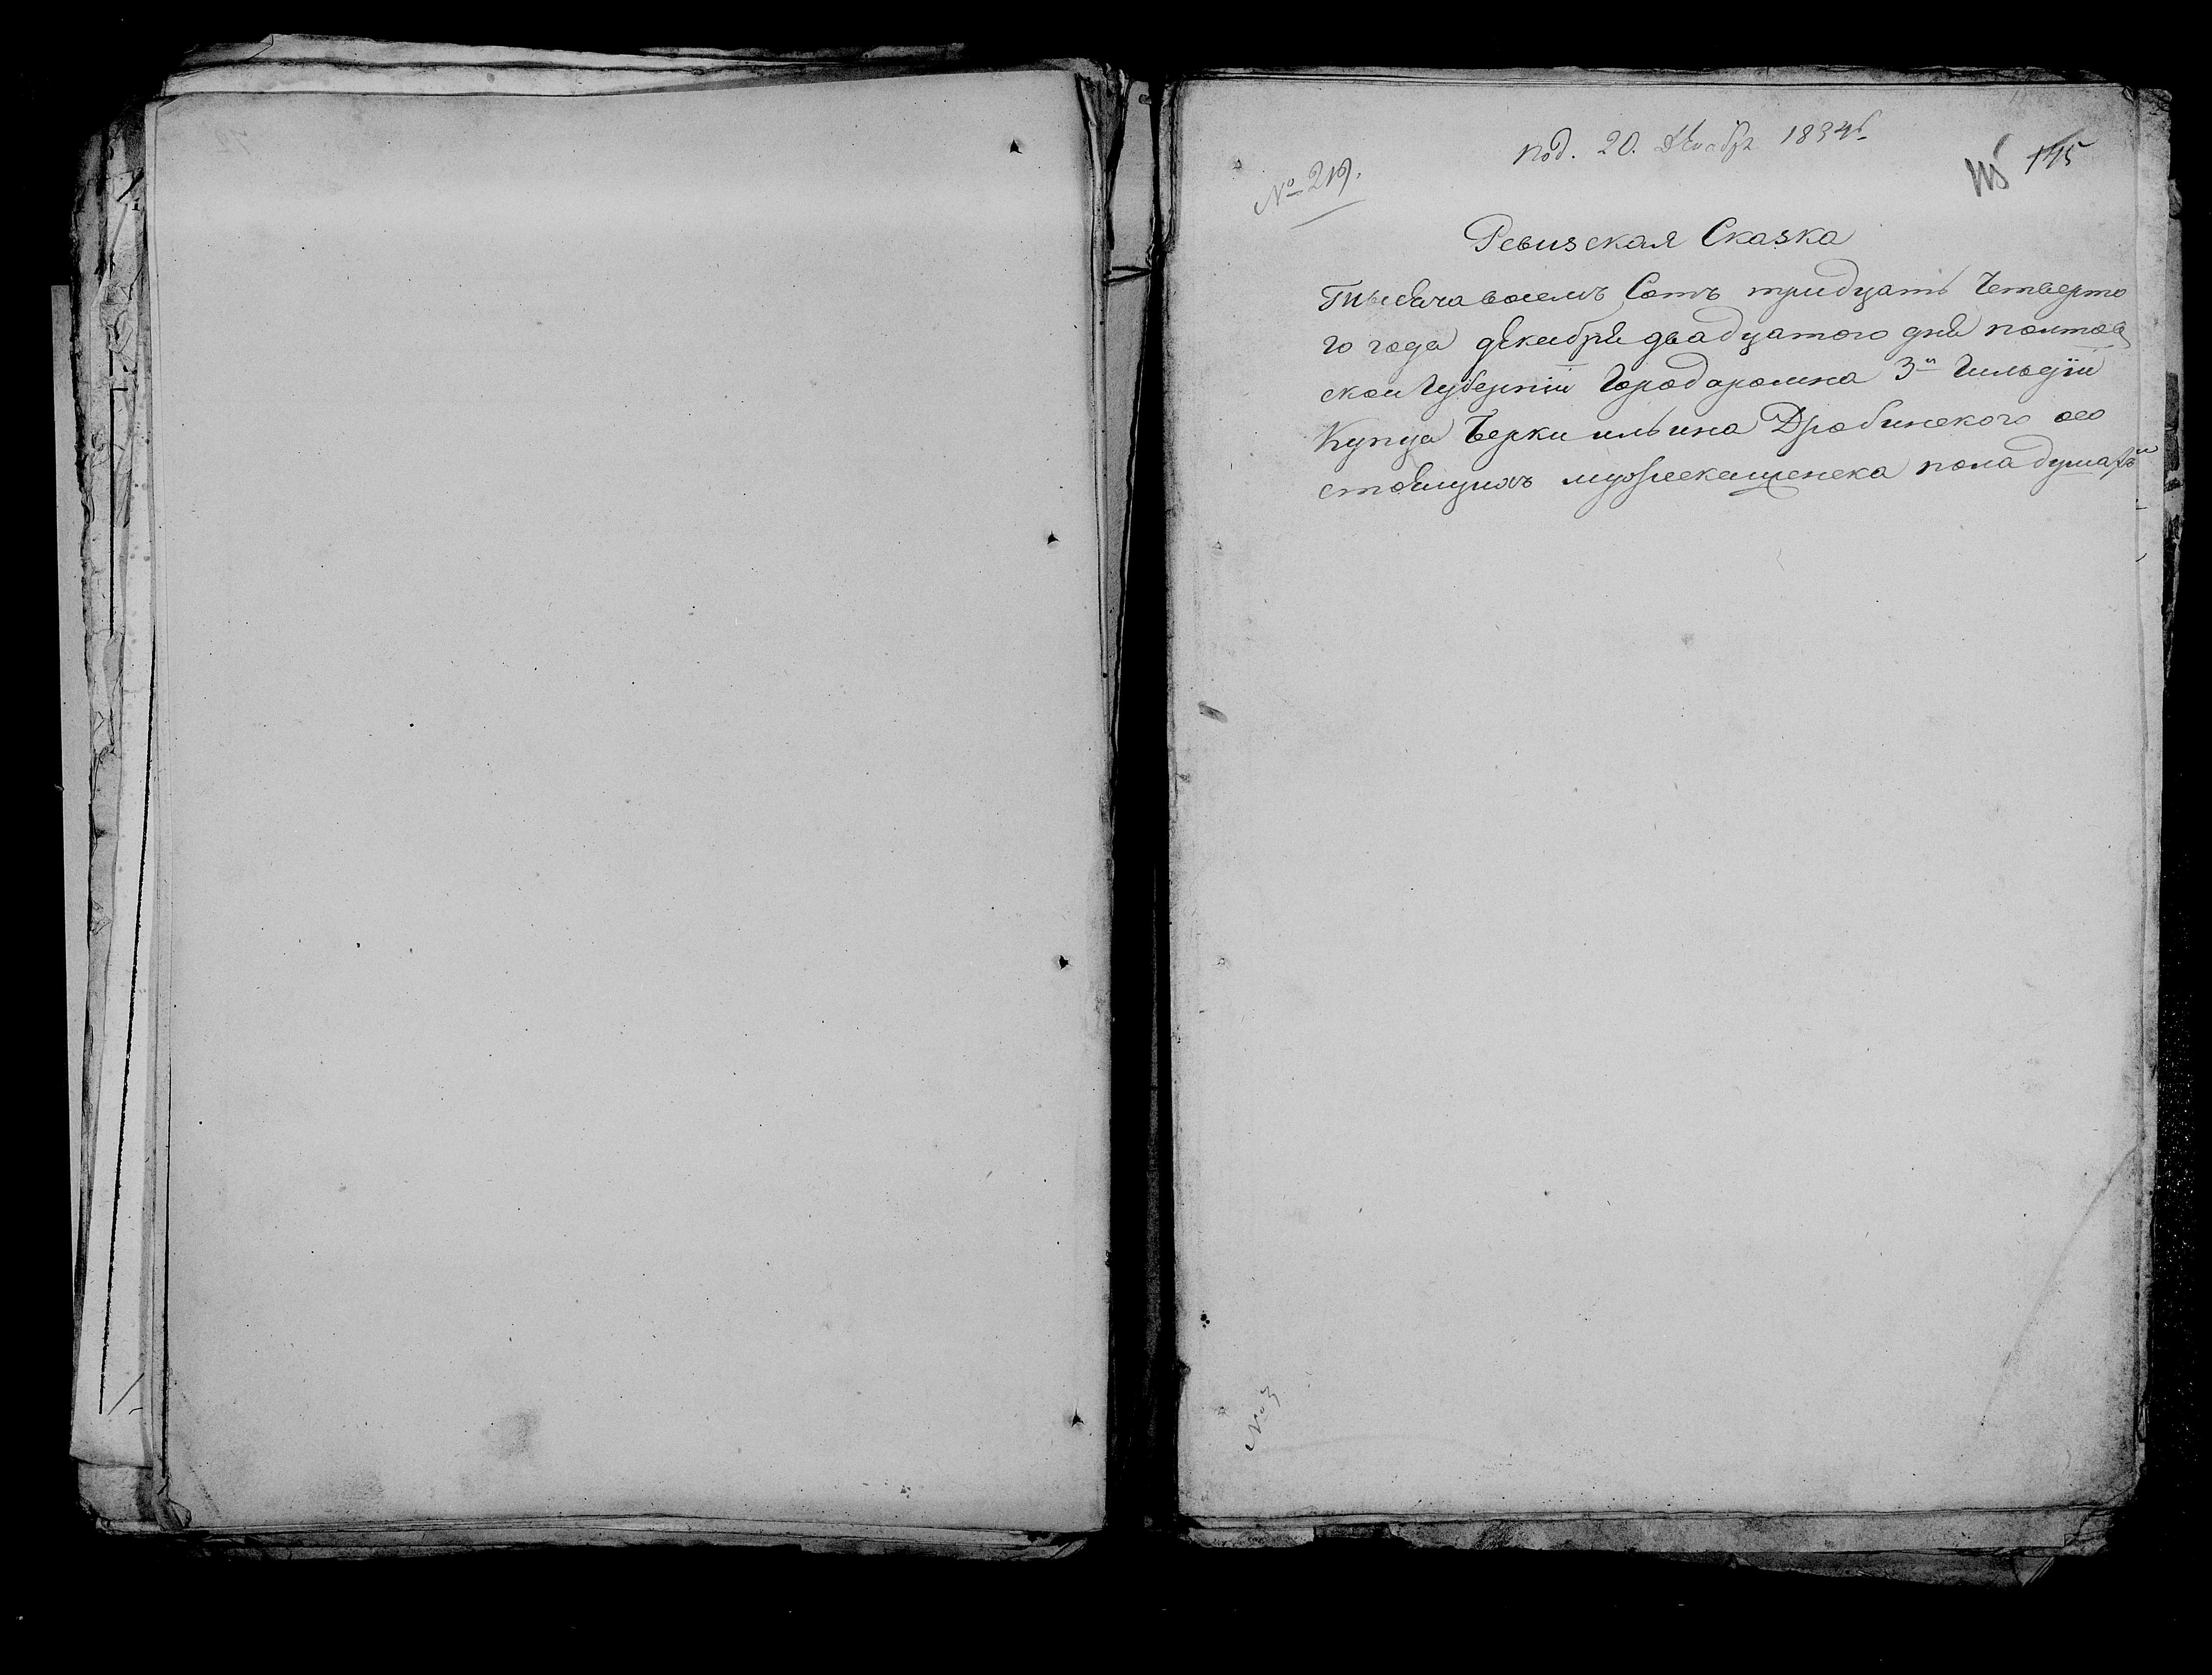 под. 20. Декабр 1834
№ 219.
115 145
Ревизская Сказка
Тысеча восемъ Сотъ тридцать Четверто
го года декабря двадцатого дня полтов
скои Губернiи Город аромна 3и Гильдiи
Купца Берки ильина Дробинского осо
стоящихъ мужескаиженска пола душахъ
№ 3